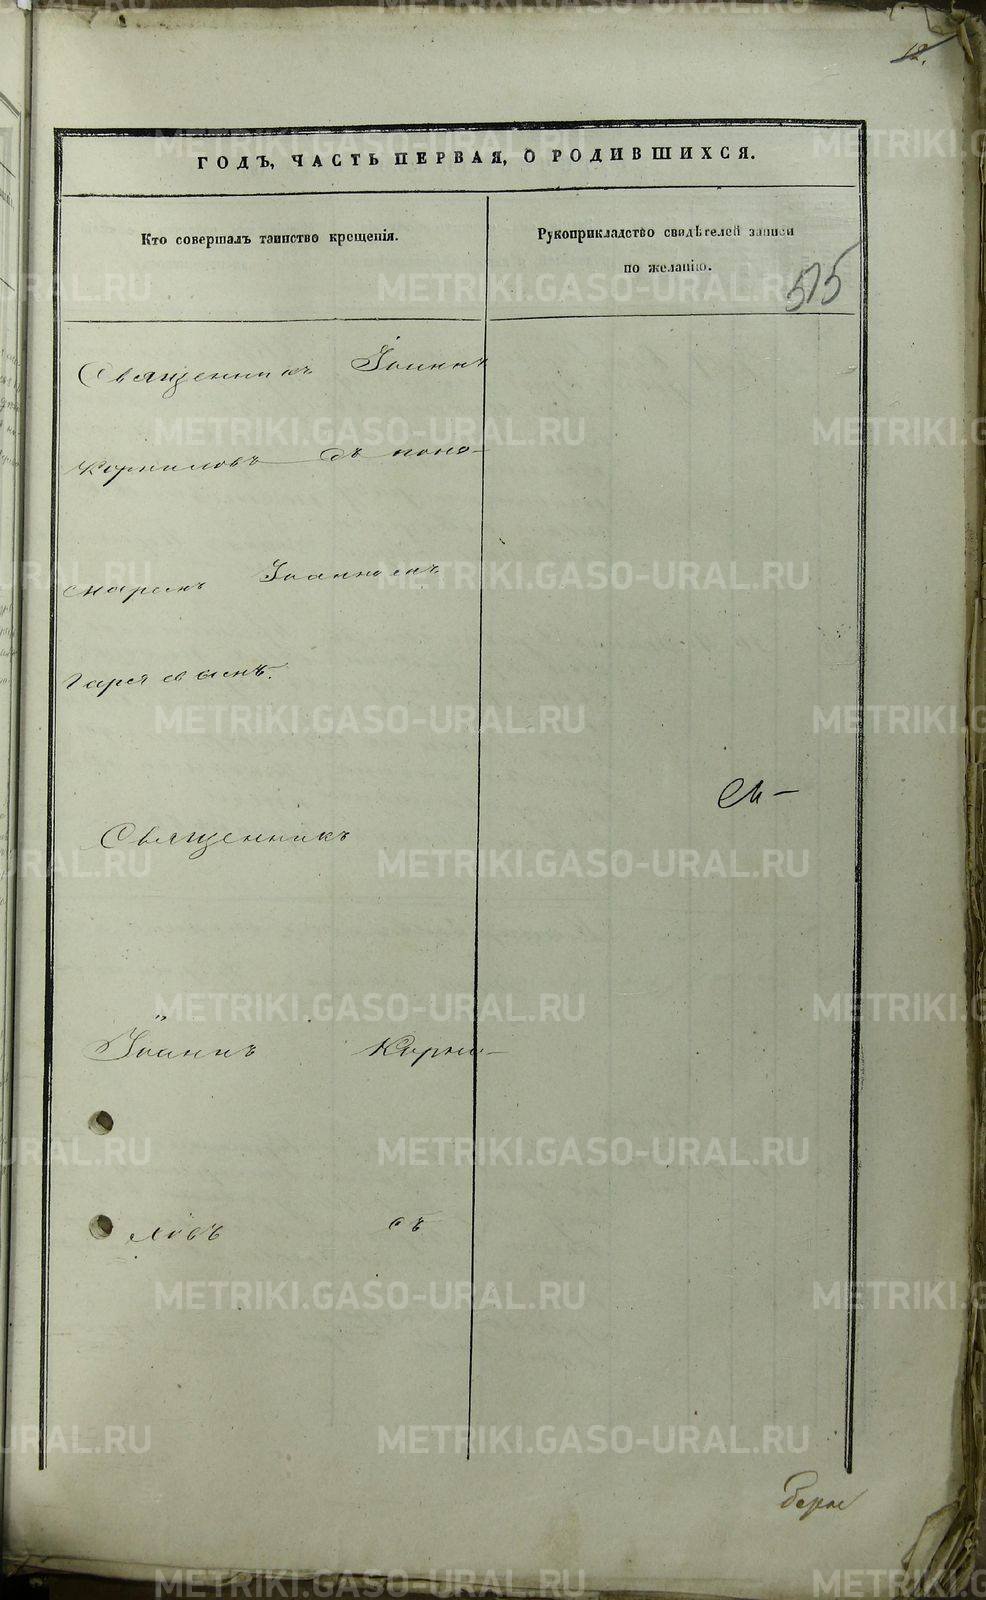 12.
ГОДЪ, ЧАСТЬ ПЕРВАЯ, О РОДИВШИХСЯ.
Кто совершалъ таинство крещенія.
Рукоприкладство свидѣтелей записи
по желанію.
515
Священникъ Іоаннъ
Корниловъ съ поно-
маремъ Іоанномъ
Священникъ
Іоаннъ Корни-
ловъ съ
METRIKI.GASO-URAL.RU